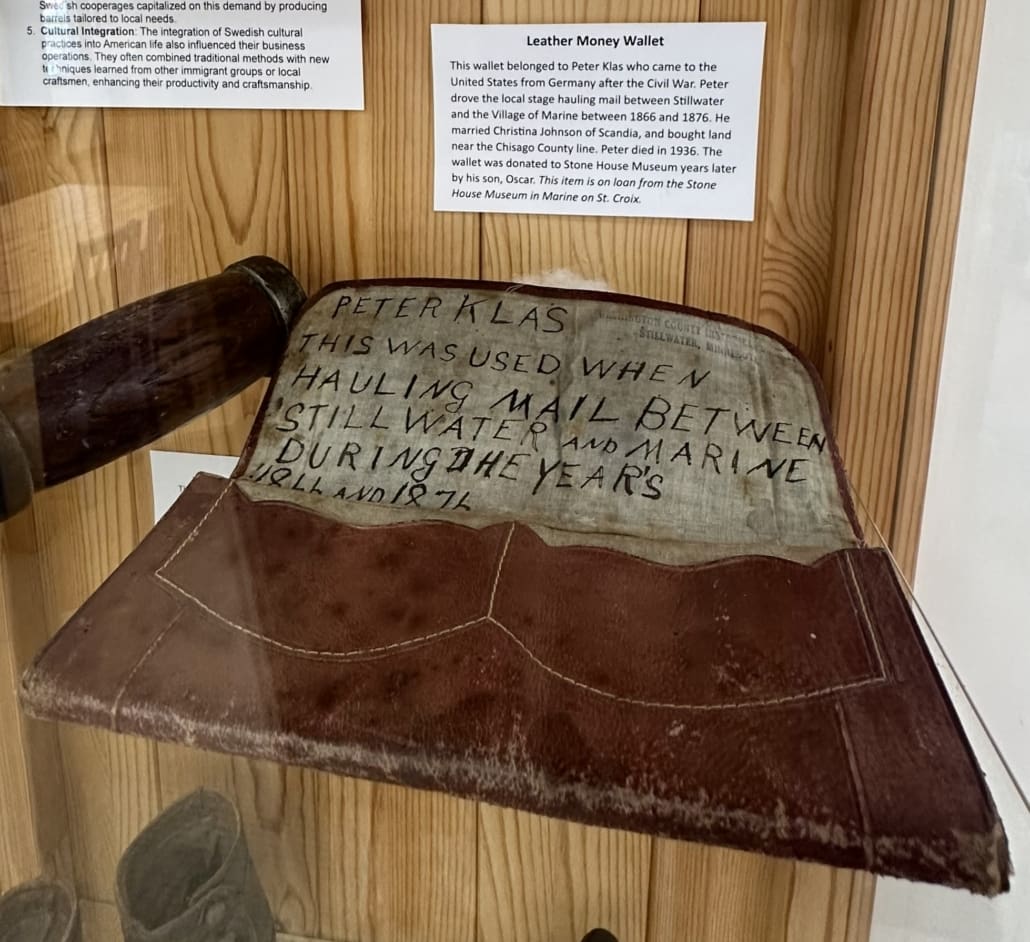 Swedish cooperages capitalized on this demand by producing
barrels tailored to local needs.
5. Cultural Integration: The integration of Swedish cultural
practices into American life also influenced their business
operations. They often combined traditional methods with new
techniques learned from other immigrant groups or local
craftsmen, enhancing their productivity and craftsmanship.
Leather Money Wallet
This wallet belonged to Peter Klas who came to the
United States from Germany after the Civil War. Peter
drove the local stage hauling mail between Stillwater
and the Village of Marine between 1866 and 1876. He
married Christina Johnson of Scandia, and bought land
near the Chisago County line. Peter died in 1936. The
wallet was donated to Stone House Museum years later
by his son, Oscar. This item is on loan from the Stone
House Museum in Marine on St. Croix.
PETER KLAS
COUNTY
STILLWATER, MINNESOTA
THIS WAS USED WHEN
HAULING MAIL BETWEEN
STILLWATER AND MARINE
DURING THE YEAR'S
1866 AND 1876